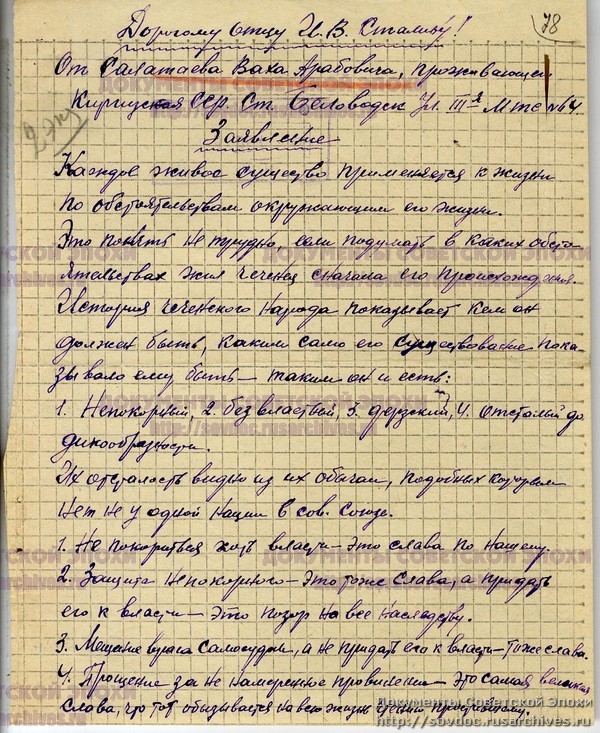 78
Дорогому отцу И.В. Сталину!
От Салатаева Ваха Арабовича, проживающей
Киргизская ССР. Ст. Беловодск Ул. III-я Мтс №64.
Заявление
Каждое живое существо применяется к жизни
по обстоятельствам окружающим его жизни.
Это понять не трудно, если подумать в каких обсто
ятельствах жил чеченец сначала его происхождения.
История чеченского народа показывает кем он
должен быть, каким само его существование пока-
зывало ему быть – таким он и есть:
1. Непокорный, 2. безвластный, 3. дерзский, 4. Отсталый до
дикообразности.
Их отсталость видно из их обычаи, подобных которым
нет не у одной нации в сов. Союзе.
1. Не покориться хоть власти – это слава по нашему.
2. Защита непокорного – это тоже слава, а придать
его к власти – это позор на все наследству.
3. Мещение врага Самосудом, а не придать его к власти – тоже слава.
4. Прощение за не намеренное провинение – это самая великая
слава, что тот обязывается на всю жизнь простившему.
Документы Советской Эпохи
http://sovdoc.rusarchives.ru